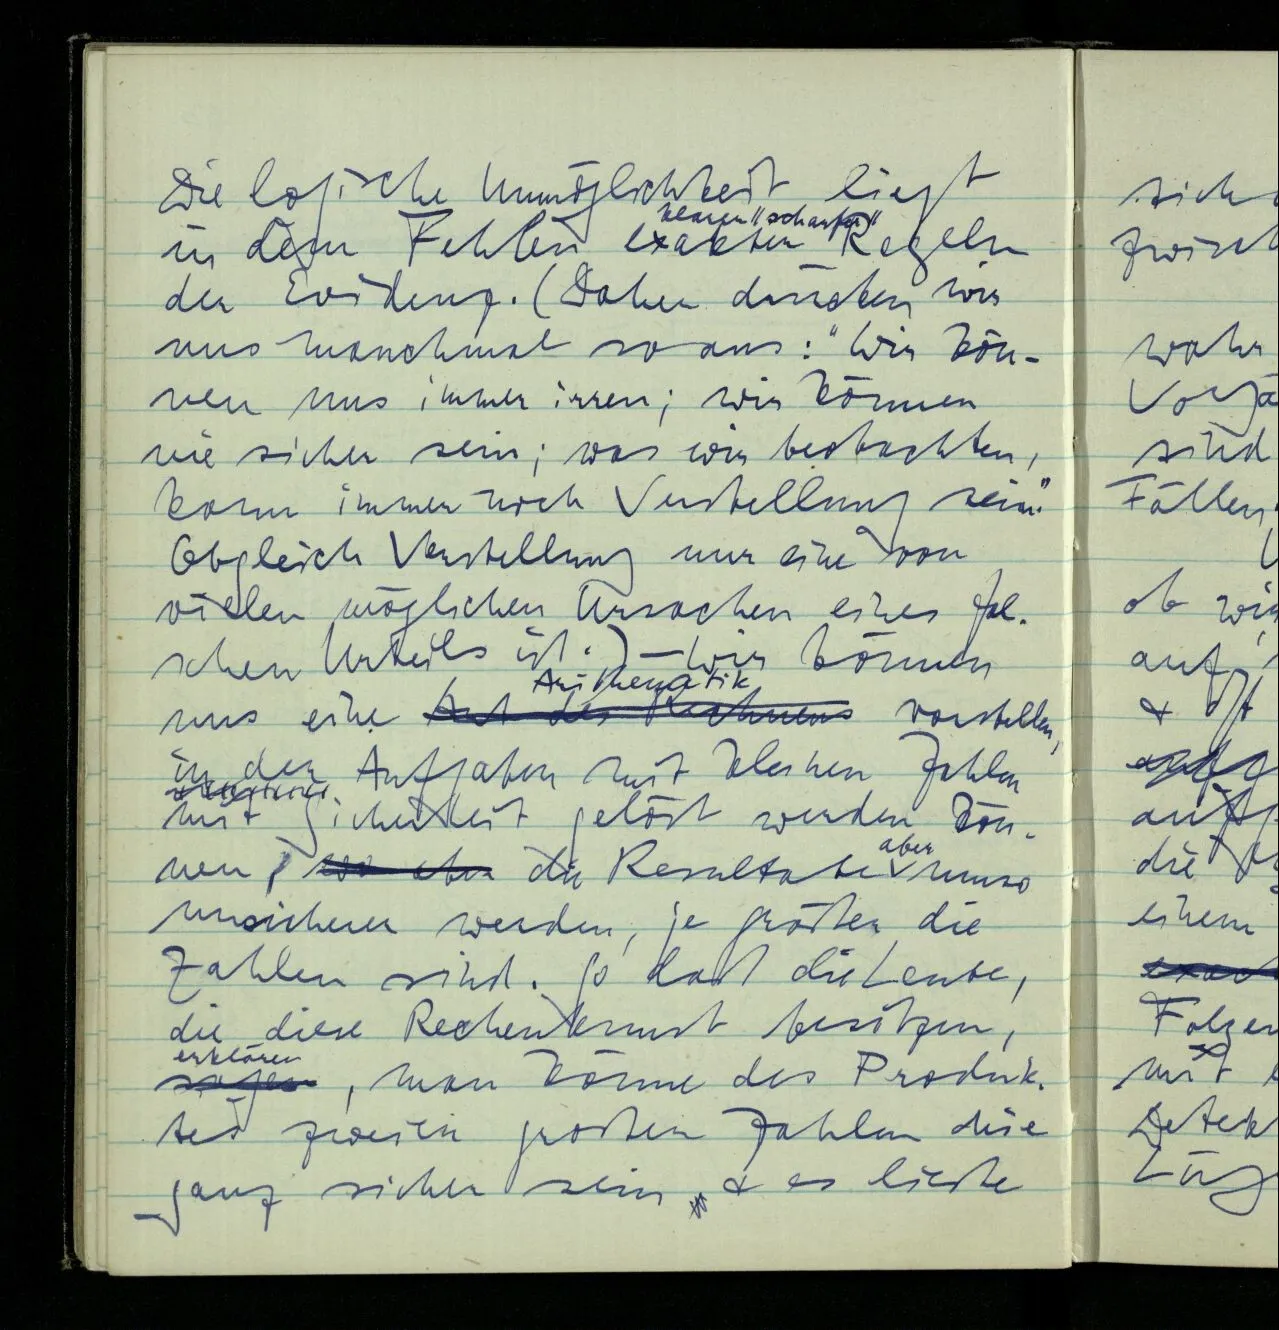 Die logische Unmöglichkeit liegt
klaren "scharfen"
in dem Fehlen exakten Regeln
der Evidenz. (Daher drücken wir
uns manchmal so aus: "Wir kön-
nen uns immer irren; wir können
nie sicher sein; was wir beobachten,
kann immer noch Verstellung sein."
Obgleich Verstellung nur eine von
vielen möglichen Ursachen eines fal-
schen Urteils ist.) – Wir können
Arithmetik
uns eine Art des Rechnens vorstellen,
in der Aufgaben mit kleinen Zahlen
mit Sicherheit gelöst werden kön-
aber
nen, die Resultate umso
unsicherer werden, je größer die
Zahlen sind. So daß die Leute,
die diese Rechenkunst besitzen,
erklären
sagen, man könne des Produk-
tes zweier großen Zahlen nie
ganz sicher sein, & es ließe
sich
zwisch
wahr
Vorgä
sind
Fällen
ob wir
auf
& oft
die
einem
Folgen
mit
Detek
Lüg